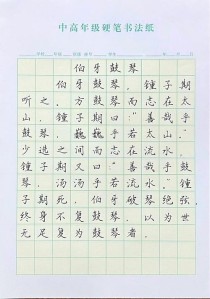 中高年级硬笔书法纸
伯牙鼓琴
伯牙鼓琴,锺子期
听之。方鼓琴而志在太
山,锺子期曰:“善哉乎
鼓琴,巍巍乎若太山。”
少选之间而志在流水,
锺子期又曰:“善哉乎鼓
琴,汤汤乎若流水。”锺
子期死,伯牙破琴绝弦,
终身不复鼓琴,以为世
无足复为鼓琴者。